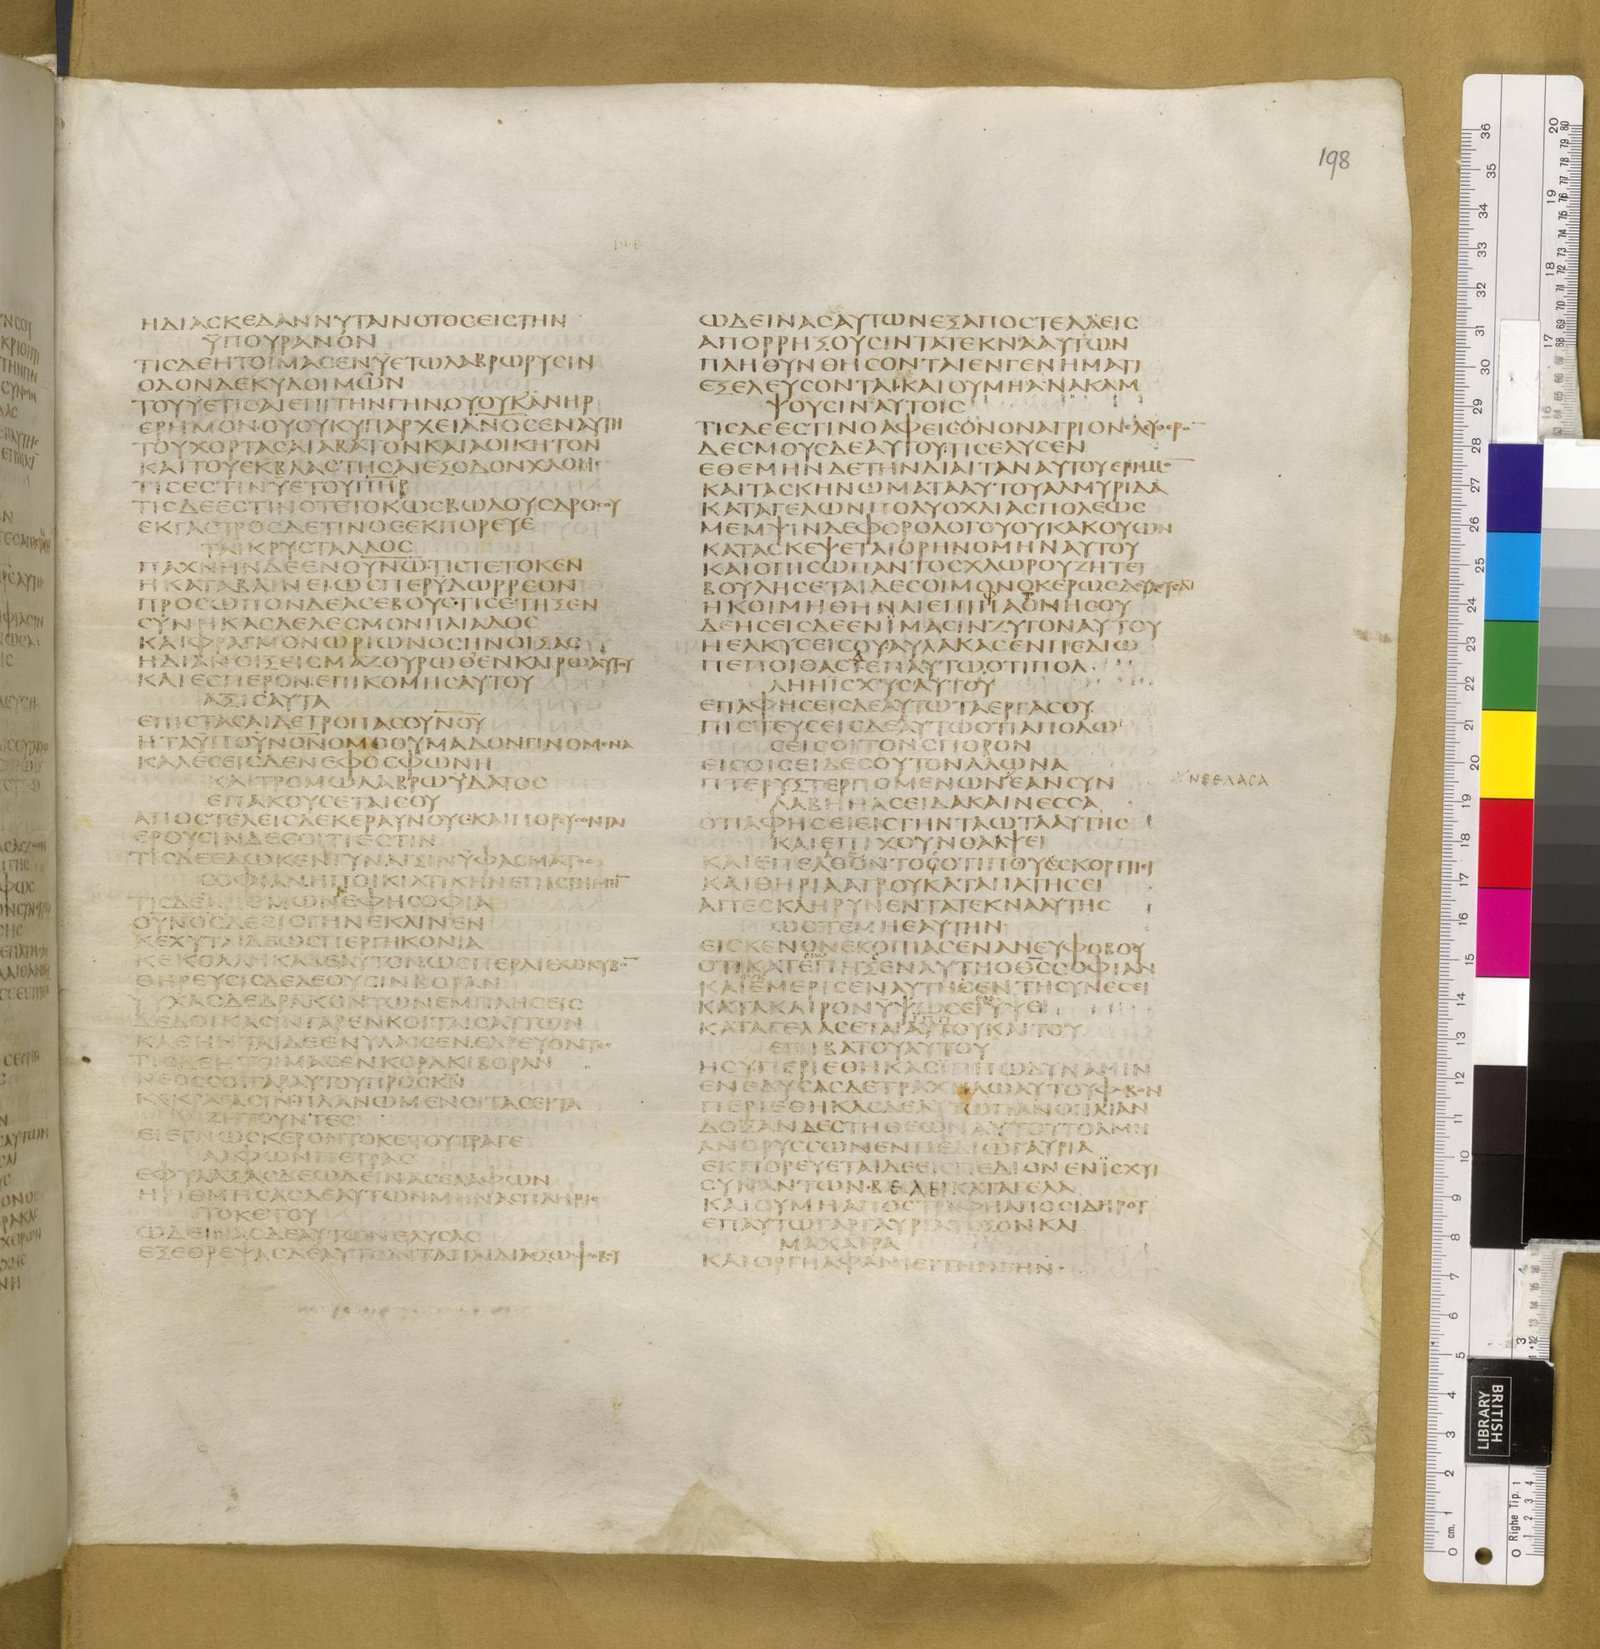 198
ΗΔΙΑϹΚΕΔΑΝΝΥΤΑΙΝΟΤΟϹΕΙϹΤΗΝ
ΫΠΟΥΡΑΝΟΝ
ΤΙϹΔΕΗΤΟΙΜΑϹΕΝΫΕΤΩΛΑΒΡΩΡΥϹΙΝ
ΟΔΟΝΔΕΚΥΔΟΙΜΩΝ
ΤΟΥΫΕΤΙϹΑΙΕΠΙΤΗΝΓΗΝΟΥΟΥΚΑΝΗΡ
ΕΡΗΜΟΝΟΥΟΥΚΥΠΑΡΧΕΙΑΝΟϹΕΝΑΥΤΗ
ΤΟΥΧΟΡΤΑϹΑΙΑΒΑΤΟΝΚΑΙΑΟΙΚΗΤΟΝ
ΚΑΙΤΟΥΕΚΒΛΑϹΤΗϹΑΙΕΞΟΔΟΝΧΛΟΗϹ
ΤΙϹΕϹΤΙΝΫΕΤΟΥΠΗΡ
ΤΙϹΔΕΕϹΤΙΝΟΤΕΤΟΚΩϹΒΩΛΟΥϹΔΡΟϹΟΥ
ΕΚΓΑϹΤΡΟϹΔΕΤΙΝΟϹΕΚΠΟΡΕΥΕ
ΤΑΙΚΡΥϹΤΑΛΛΟϹ
ΠΑΧΝΗΝΔΕΕΝΟΥΝΩΤΙϹΤΕΤΟΚΕΝ
ΗΚΑΤΑΒΑΙΝΕΙΩϹΠΕΡΫΔΩΡΡΕΟΝ
ΠΡΟϹΩΠΟΝΔΕΑϹΕΒΟΥϹΤΙϹΕΤΗΞΕΝ
ϹΥΝΗΚΑϹΔΕΔΕϹΜΟΝΠΛΙΑΔΟϹ
ΚΑΙΦΡΑΓΜΟΝΩΡΙΩΝΟϹΗΝΟΙΞΑϹ
ΗΔΙΑΝΟΙΞΕΙϹΜΑΖΟΥΡΩΘΕΝΚΑΙΡΩΑΥΤΟΥ
ΚΑΙΕϹΠΕΡΟΝΕΠΙΚΟΜΗϹΑΥΤΟΥ
ΑΞΙϹΑΥΤΑ
ΕΠΙϹΤΑϹΑΙΔΕΤΡΟΠΑϹΟΥΝΟΥ
ΗΤΑΫΠΟΥΝΟΝΟΜΟΘΥΜΑΔΟΝΓΙΝΟΜΕΝΑ
ΚΑΛΕϹΕΙϹΔΕΝΕΦΟϹΦΩΝΗ
ΚΑΙΤΡΟΜΩΛΑΒΡΩΫΔΑΤΟϹ
ΕΠΑΚΟΥϹΕΤΑΙϹΟΥ
ΑΠΟϹΤΕΛΕΙϹΔΕΚΕΡΑΥΝΟΥϹΚΑΙΠΟΡΕΥϹΟΝΤΑΙ
ΕΡΟΥϹΙΝΔΕϹΟΙΤΙΕϹΤΙΝ
ΤΙϹΔΕΕΔΩΚΕΝΓΥΝΑΙΞΙΝΫΦΑϹΜΑΤΟϹ
ϹΟΦΙΑΝΗΠΟΙΚΙΛΤΙΚΗΝΕΠΙϹΤΗΜΗΝ
ΤΙϹΔΕΑΡΙΘΜΩΝΝΕΦΗϹΟΦΙΑ
ΟΥΝΟϹΔΕΕΙϹΓΗΝΕΚΛΙΝΕΝ
ΚΕΧΥΤΑΙΔΕΩϹΠΕΡΓΗΚΟΝΙΑ
ΚΕΚΟΛΛΗΚΑΔΕΑΥΤΟΝΩϹΠΕΡΛΙΘΩΚΥΒΟΝ
ΘΗΡΕΥϹΙϹΔΕΛΕΟΥϹΙΝΒΟΡΑΝ
ΨΥΧΑϹΔΕΔΡΑΚΟΝΤΩΝΕΜΠΛΗϹΕΙϹ
ΔΕΔΟΙΚΑϹΙΝΓΑΡΕΝΚΟΙΤΑΙϹΑΥΤΩΝ
ΚΑΘΗΝΤΑΙΔΕΕΝΫΛΑΙϹΕΝΕΔΡΕΥΟΝΤΕϹ
ΤΙϹΔΕΗΤΟΙΜΑϹΕΝΚΟΡΑΚΙΒΟΡΑΝ
ΝΕΟϹϹΟΙΓΑΡΑΥΤΟΥΠΡΟϹΚΝ
ΚΕΚΡΑΓΑϹΙΝΠΛΑΝΩΜΕΝΟΙΤΑϹΕΙΤΑ
ΖΗΤΟΥΝΤΕϹ
ΕΙΕΓΝΩϹΚΕΡΟΝΤΟΚΕΤΟΥΤΡΑΓΕ
ΛΑΦΩΝΠΕΤΡΑϹ
ΕΦΥΛΑΞΑϹΔΕΩΔΕΙΝΑϹΕΛΑΦΩΝ
ΗΡΙΘΜΗϹΑϹΔΕΑΥΤΩΝΜΗΝΑϹΠΛΗΡΙϹ
ΤΟΚΕΤΟΥ
ΩΔΕΙΝΑϹΔΕΑΥΤΩΝΕΛΥϹΑϹ
ΕΞΕΘΡΕΨΑϹΔΕΑΥΤΩΝΤΑΠΑΙΔΙΑΕΞΩΦΟΒΟΥ
ΩΔΕΙΝΑϹΑΥΤΩΝΕΞΑΠΟϹΤΕΛΛΕΙϹ
ΑΠΟΡΡΗΞΟΥϹΙΝΤΑΤΕΚΝΑΑΥΤΩΝ
ΠΛΗΘΥΝΘΗϹΟΝΤΑΙΕΝΓΕΝΗΜΑΤΙ
ΕΞΕΛΕΥϹΟΝΤΑΙΚΑΙΟΥΜΗΑΝΑΚΑΜ
ΨΟΥϹΙΝΑΥΤΟΙϹ
ΤΙϹΔΕΕϹΤΙΝΟΑΦΕΙϹΟΝΟΝΑΓΡΙΟΝΕΛΕΥΘΕΡΟΝ
ΔΕϹΜΟΥϹΔΕΑΥΤΟΥΤΙϹΕΛΥϹΕΝ
ΕΘΕΜΗΝΔΕΤΗΝΔΙΑΙΤΑΝΑΥΤΟΥΕΡΗΜΟΝ
ΚΑΙΤΑϹΚΗΝΩΜΑΤΑΑΥΤΟΥΑΛΜΥΡΙΔΑ
ΚΑΤΑΓΕΛΩΝΠΟΛΥΟΧΛΙΑϹΠΟΛΕΩϹ
ΜΕΜΨΙΝΔΕΦΟΡΟΛΟΓΟΥΟΥΚΑΚΟΥΩΝ
ΚΑΤΑϹΚΕΨΕΤΑΙΟΡΗΝΟΜΗΝΑΥΤΟΥ
ΚΑΙΟΠΙϹΩΠΑΝΤΟϹΧΛΩΡΟΥΖΗΤΕΙ
ΒΟΥΛΗϹΕΤΑΙΔΕϹΟΙΜΟΝΟΚΕΡΩϹΔΟΥΛΕΥϹΑΙ
ΗΚΟΙΜΗΘΗΝΑΙΕΠΙΠΑΘΝΗϹΟΥ
ΔΕΗϹΕΙϹΔΕΕΝΪΜΑϹΙΝΖΥΓΟΝΑΥΤΟΥ
ΗΕΛΚΥϹΕΙϹΟΥΑΥΛΑΚΑϹΕΝΠΕΔΙΩ
ΠΕΠΟΙΘΑϹΔΕΕΠΑΥΤΩΟΤΙΠΟΛ
ΛΗΗΪϹΧΥϹΑΥΤΟΥ
ΕΠΑΦΗϹΕΙϹΔΕΑΥΤΩΤΑΕΡΓΑϹΟΥ
ΠΙϹΤΕΥϹΕΙϹΔΕΑΥΤΩΟΤΙΑΠΟΔΩ
ϹΕΙϹΟΙΤΟΝϹΠΟΡΟΝ
ΕΙϹΟΙϹΕΙΔΕϹΟΥΤΟΝΑΛΩΝΑ
ΠΤΕΡΥΞΤΕΡΠΟΜΕΝΩΝΕΑΝϹΥΝ
ΛΑΒΗΗΑϹΕΙΔΑΚΑΙΝΕϹϹΑ
ΝΕΕΛΑϹΑ
ΟΤΙΑΦΗϹΕΙΕΙϹΓΗΝΤΑΩΤΑΑΥΤΗϹ
ΚΑΙΕΠΙΧΟΥΝΘΑΛΨΕΙ
ΚΑΙΕΠΕΛΑΘΟΝΤΟΟΤΙΠΟΥϹϹΚΟΡΠΙΕΙ
ΚΑΙΘΗΡΙΑΑΓΡΟΥΚΑΤΑΠΑΤΗϹΕΙ
ΑΠΕϹΚΛΗΡΥΝΕΝΤΑΤΕΚΝΑΑΥΤΗϹ
ΩϹΤΕΜΗΕΑΥΤΗΝ
ΕΙϹΚΕΝΟΝΕΚΟΠΙΑϹΕΝΑΝΕΥΦΟΒΟΥ
ΟΤΙΚΑΤΕΠΗΞΕΝΑΥΤΗΟΘϹϹΟΦΙΑΝ
ΚΑΙΕΜΕΡΙϹΕΝΑΥΤΗΟΕΝΤΗϹΥΝΕϹΕΙ
ΚΑΤΑΚΑΙΡΟΝΫΨΩϹΕΙΫΨΕΙ
ΚΑΤΑΓΕΛΑϹΕΤΑΙΑΡΤΟΥΚΑΙΤΟΥ
ΕΠΙΒΑΤΟΥΑΥΤΟΥ
ΗϹΥΠΕΡΙΕΘΗΚΑϹΙΠΠΩΔΥΝΑΜΙΝ
ΕΝΕΔΥϹΑϹΔΕΤΡΑΧΗΛΩΑΥΤΟΥΦΟΒΟΝ
ΠΕΡΙΕΘΗΚΑϹΔΕΑΥΤΩΠΑΝΟΠΛΙΑΝ
ΔΟΞΑΝΔΕϹΤΗΘΕΩΝΑΥΤΟΥΤΟΛΜΗ
ΑΝΟΡΥϹϹΩΝΕΝΠΕΔΙΩΓΑΥΡΙΑ
ΕΚΠΟΡΕΥΕΤΑΙΔΕΕΙϹΠΕΔΙΟΝΕΝΪϹΧΥΙ
ϹΥΝΑΝΤΩΝΒΕΛΕΙΚΑΤΑΓΕΛΑ
ΚΑΙΟΥΜΗΑΠΟϹΤΡΑΦΗΑΠΟϹΙΔΗΡΟΥ
ΕΠΑΥΤΩΓΑΡΓΑΥΡΙΑΤΟΞΟΝΚΑΙ
ΜΑΧΑΙΡΑ
ΚΑΙΟΡΓΗΑΦΑΝΙΕΙΤΗΝΓΗΝ